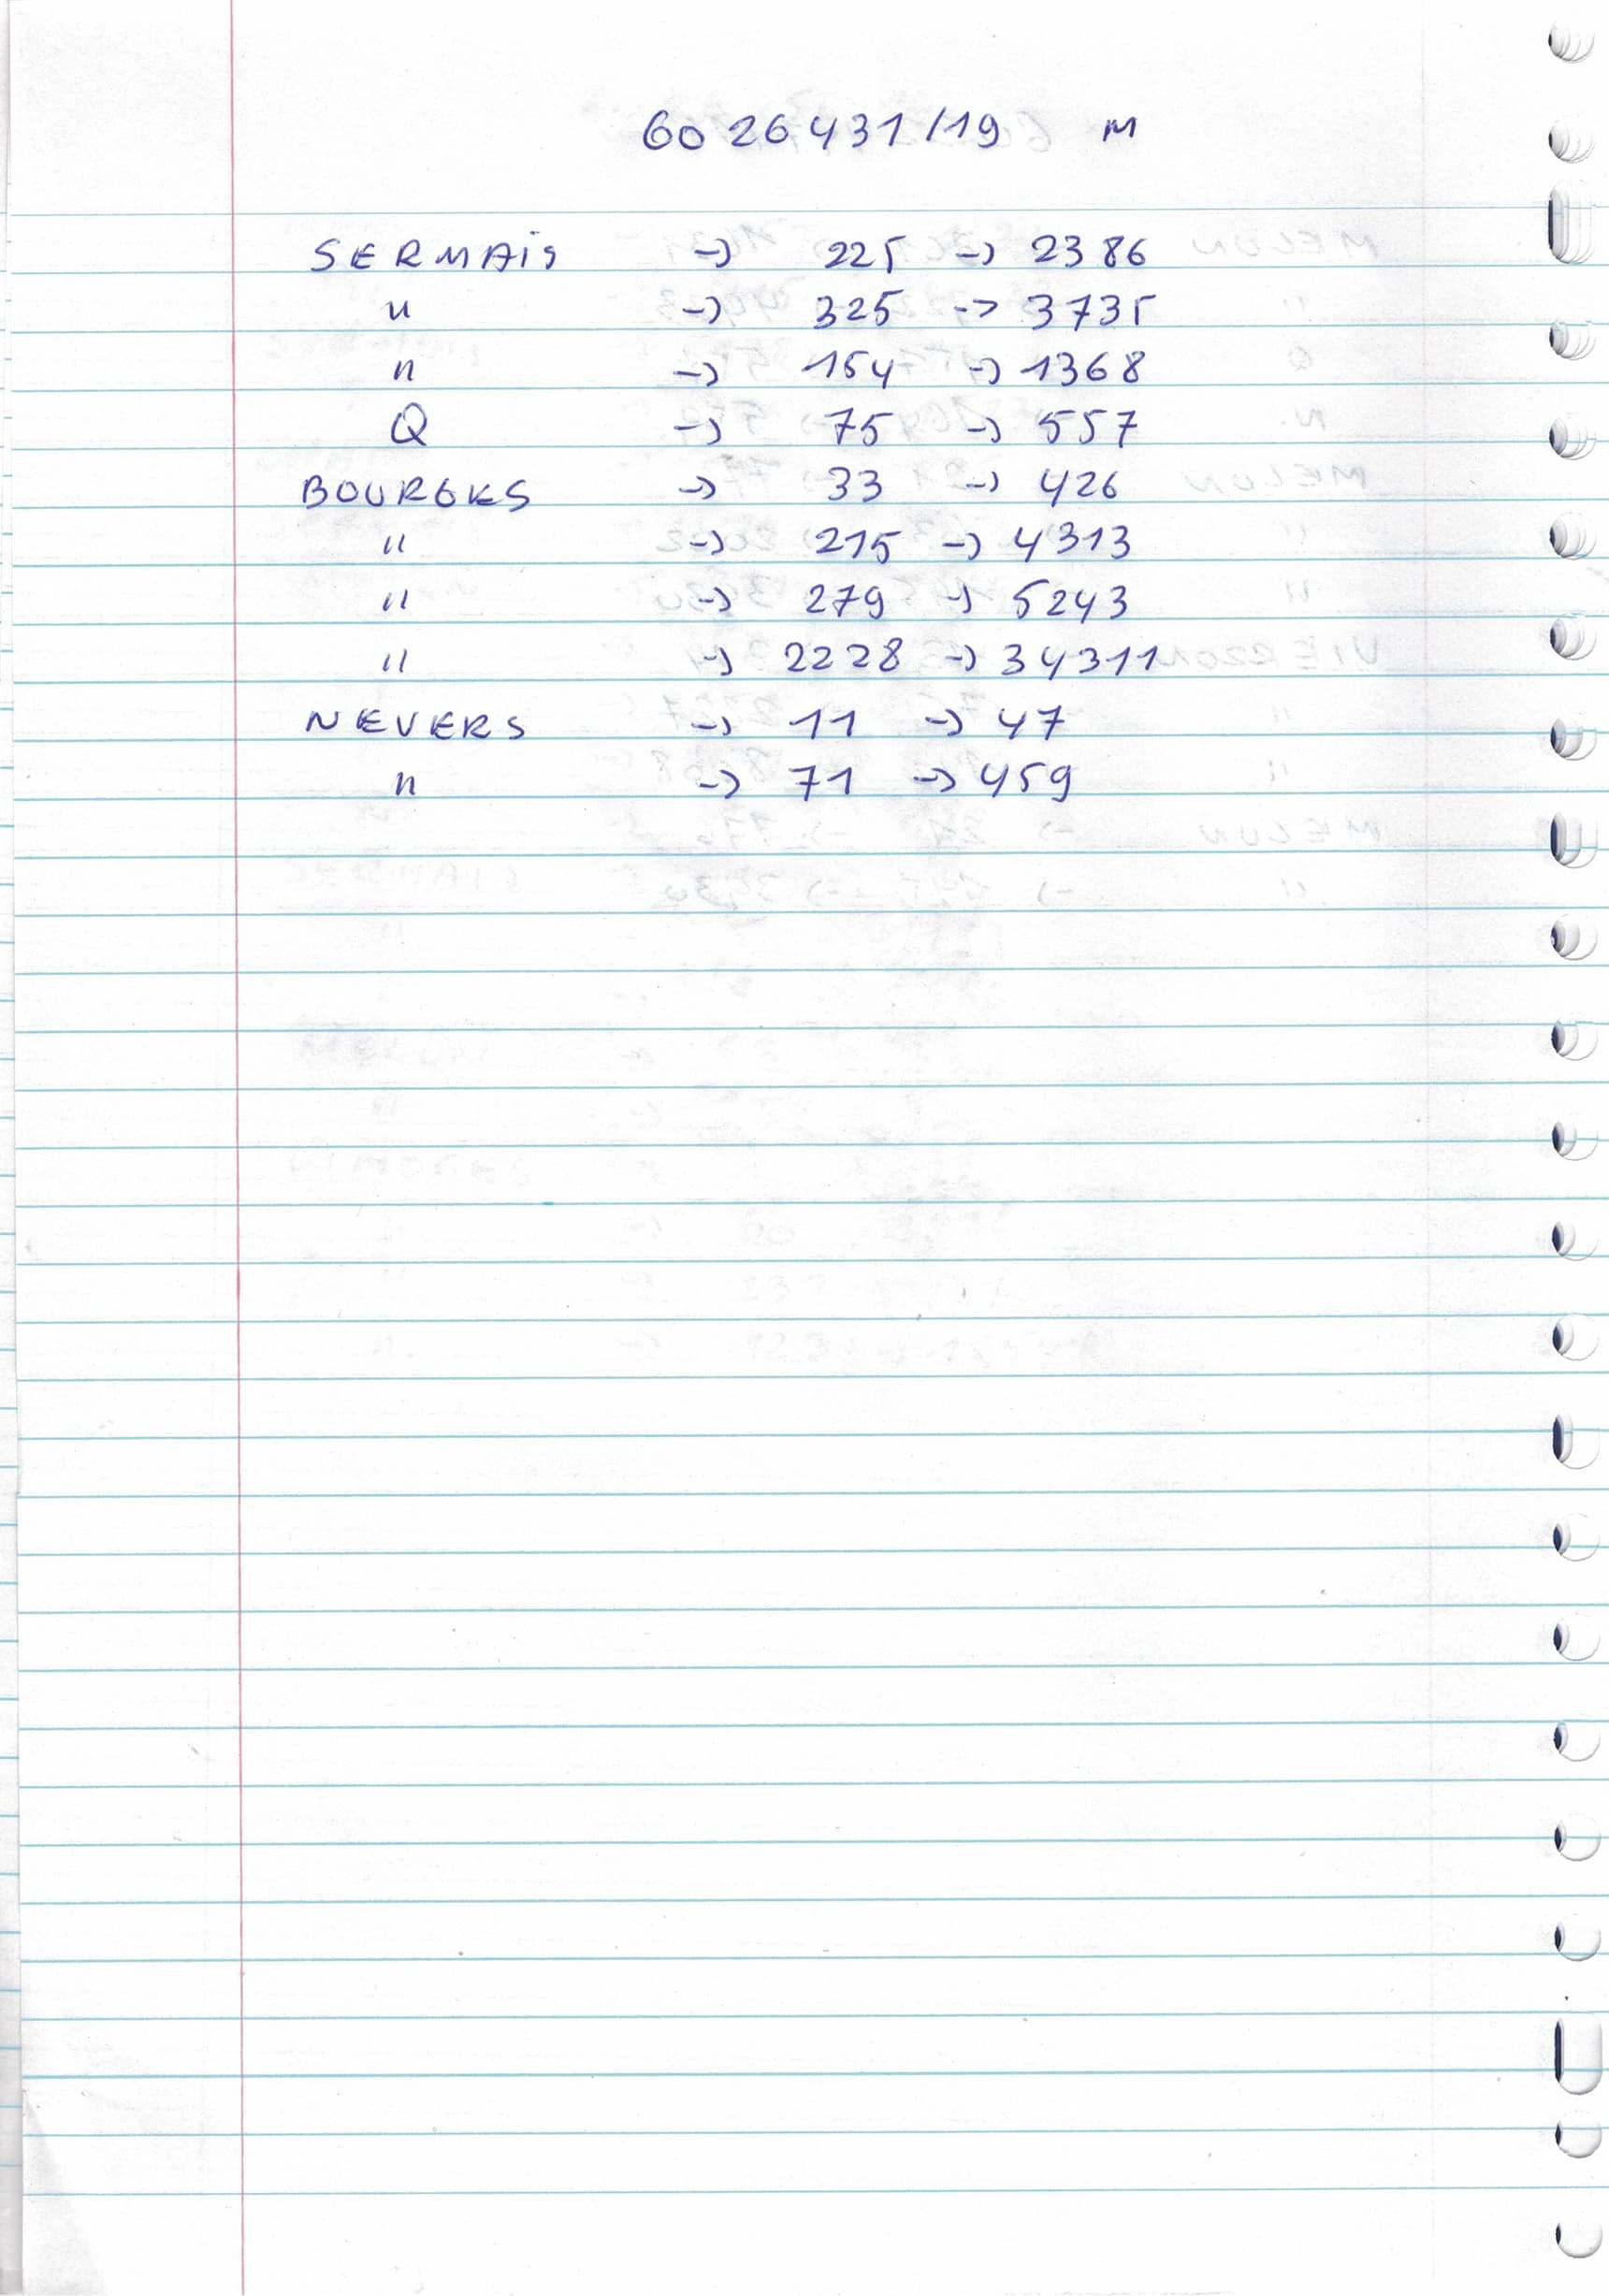 6026431/19 M
SERMAIS -> 225 -> 2386
" -> 325 -> 3735
" -> 154 -> 1368
Q -> 75 -> 557
BOURGES -> 33 -> 426
" -> 215 -> 4313
" -> 279 -> 5243
" -> 2228 -> 34311
NEVERS -> 11 -> 47
" -> 71 -> 459